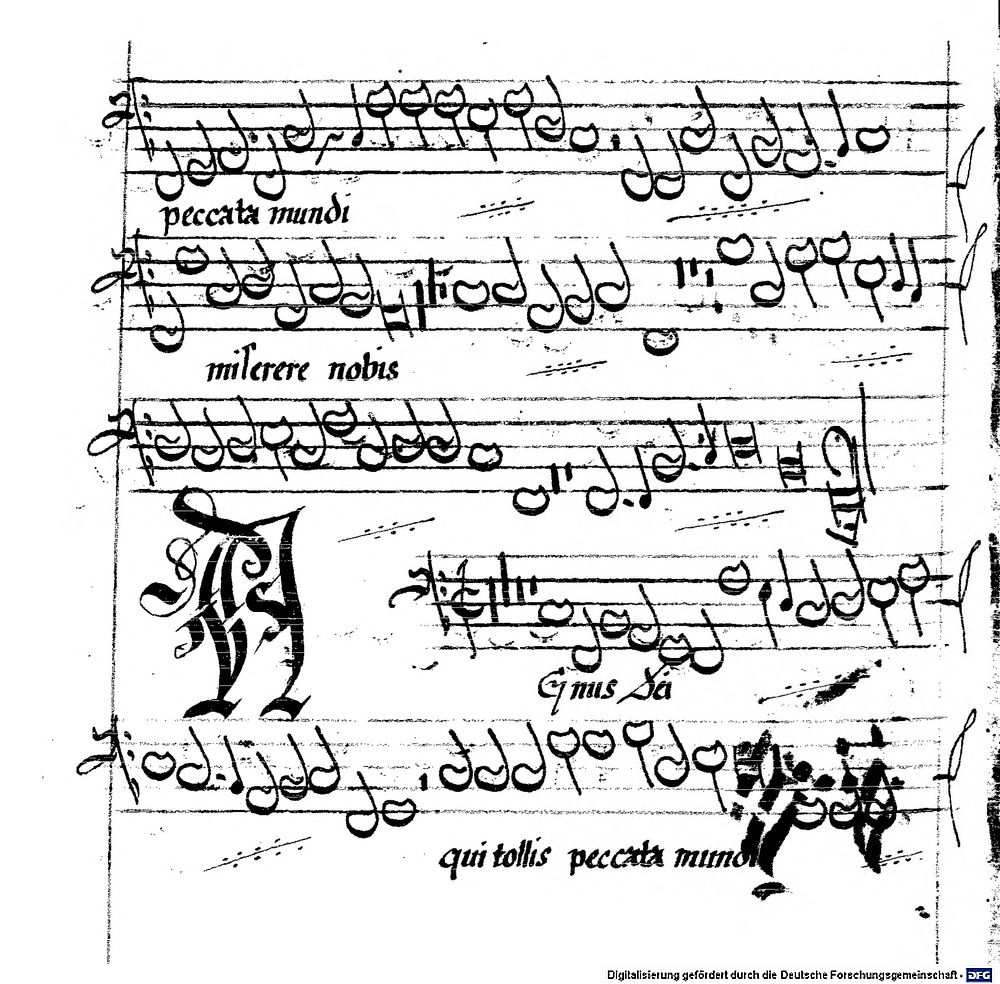 peccata mundi
miserere nobis
A
Gnus Dei
qui tollis peccata mundi
Digitalisierung gefördert durch die Deutsche Forschungsgemeinschaft - DFG